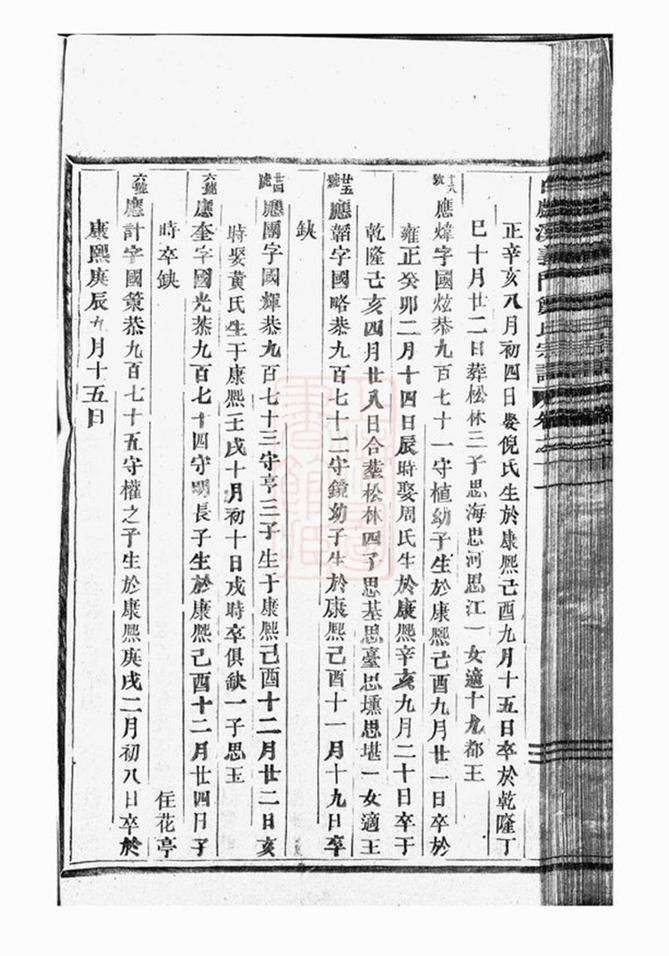 正辛亥八月初四日娶倪氏生於康熙己酉九月十五日卒於乾隆丁
巳十月廿二日葬松林三子思海思河思江一女適十九都王
十六
應煒字國炫恭九百七十一守植幼子生於康熙己酉九月廿一日卒於
雍正癸卯二月十四日辰時娶周氏生於康熙辛亥九月二十日卒于
乾隆己亥四月廿八日合塟松林四子思基思臺思壎思堪一女適王
廿五號
應韜字國略恭九百七十二守鏡幼子生於康熙己酉十一月十九日卒
缺
廿四號
應國字國輝恭九百七十三守亨三子生于康熙己酉十二月廿二日亥
時娶黃氏生于康熙壬戌十月初十日戌時卒俱缺一子思玉
六號
應奎字國光恭九百七十四守明長子生於康熙己酉十二月廿四日子
時卒缺 住花亭
六號
應計字國策恭九百七十五守權之子生於康熙庚戌二月初八日卒於
康熙庚辰九月十五日